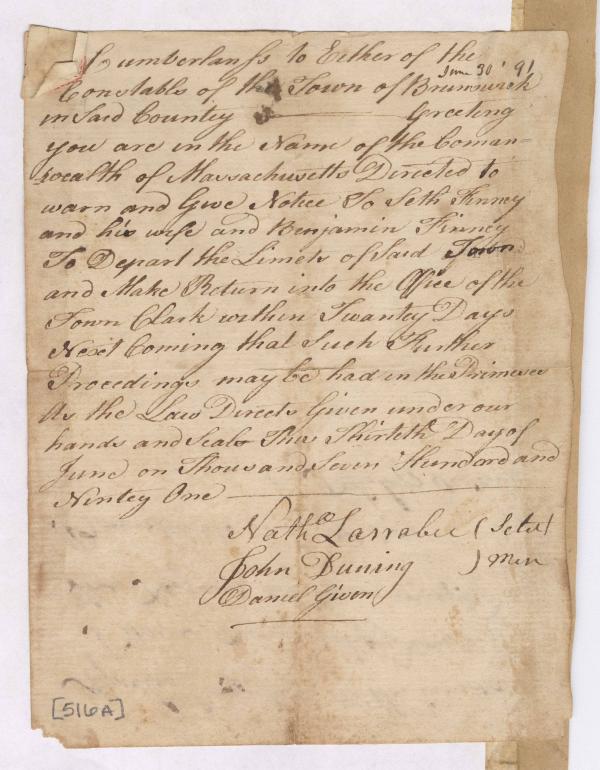 Cumberland ss to Either of the
June 30' 91
Constables of the Town of Brunswick
in Said Countey — Greeting
you are in the Name of the Coman=
=wealth of Massachusetts Directed to
warn and Give Notice To Seth Finney
and his wife and Benjamin Finney
To Depart the Limets of Said Town
and Make Return into the Office of the
Town Clark within Twantey Days
Next Coming that Such Further
Procedings may be had in the Primeses
As the Law Directs Given under our
hands and Seals This Thirteth Day of
June on Thousand Seven Hundord and
Nintey One
Nathl Larrabee ( Select
John Duning ) Men
Daniel Given
[516A]